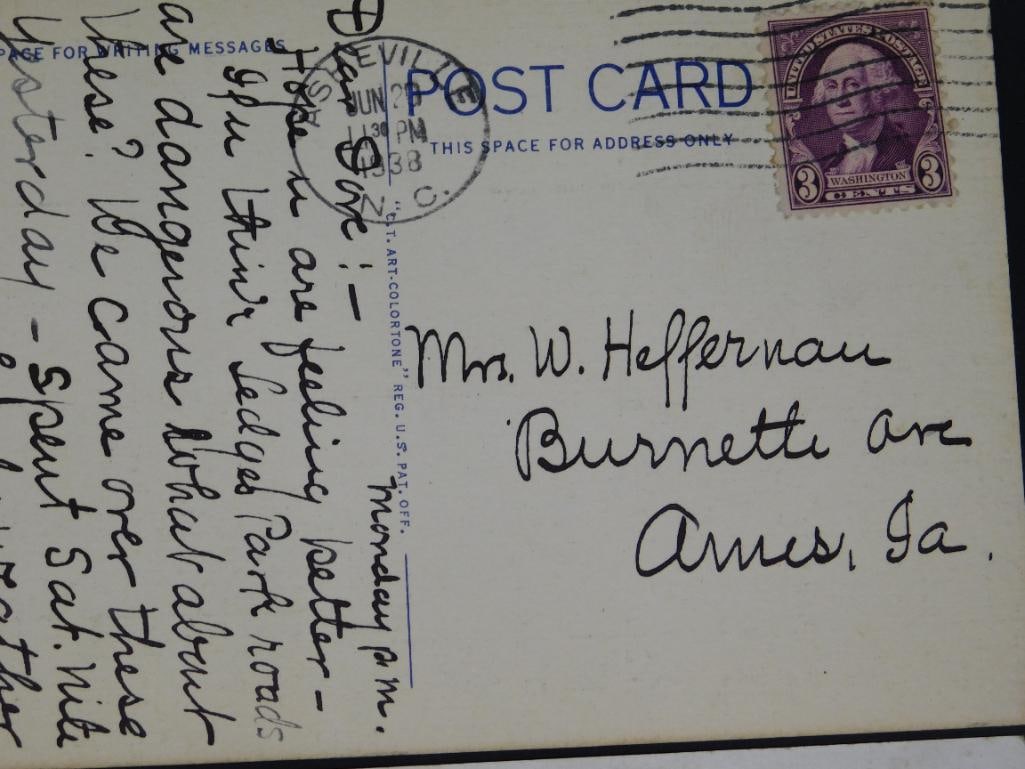 SPACE FOR WRITING MESSAGES
POST CARD
THIS SPACE FOR ADDRESS ONLY
ASHEVILLE
JUN 2
11 30 PM
1938
N. C.
UNITED STATES POSTAGE
WASHINGTON
3 CENTS 3
"C.T. ART-COLORTONE" REG. U.S. PAT. OFF.
Monday P.M.
Dear :-
Hope u are feeling better -
If u think Ledges Park roads
are dangerous what about
these? We came over these
yesterday - spent Sat. nite
Mrs. W. Heffernan
Burnette Ave
Ames, Ia.